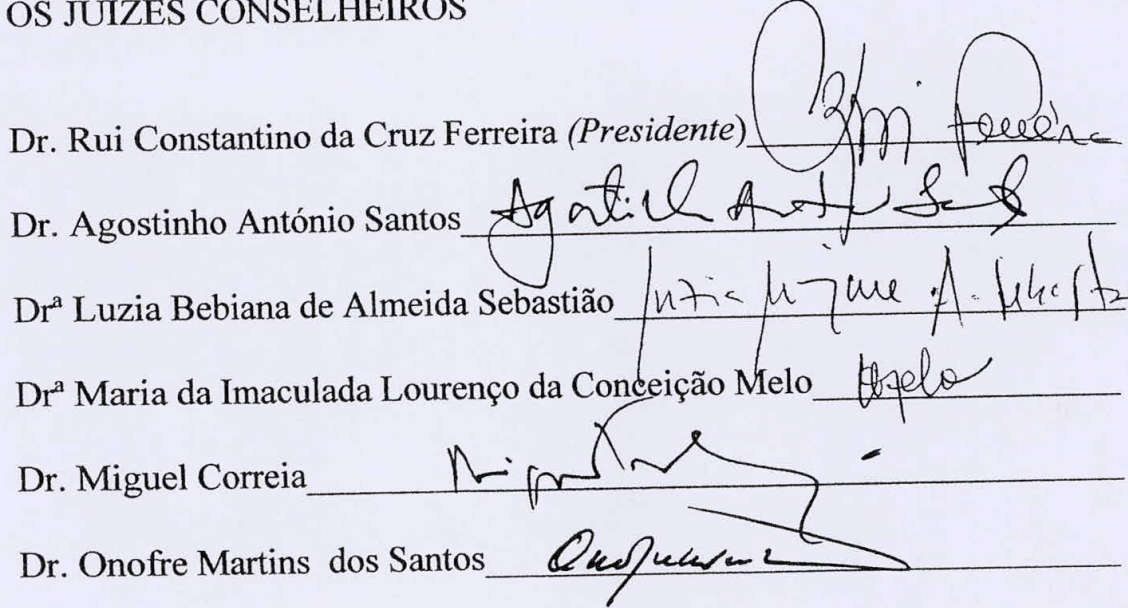 OS JUÍZES CONSELHEIROS
Dr. Rui Constantino da Cruz Ferreira (Presidente) Ferreira
Dr. Agostinho António Santos
Drª Luzia Bebiana de Almeida Sebastião
Drª Maria da Imaculada Lourenço da Conceição Melo
Dr. Miguel Correia
Dr. Onofre Martins dos Santos